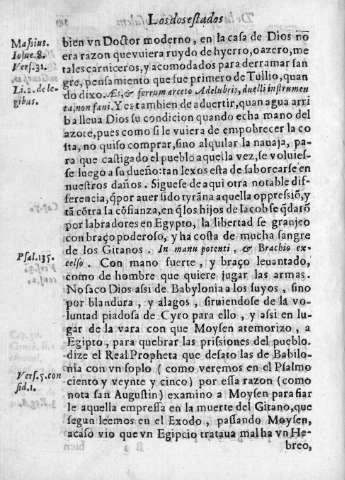 Los dos estados
Masius.
Iosue. 8.
Vers. 31.
Li. 2. de le-
gibus.
bien vn Doctor moderno, en la casa de Dios no
era razon que vuiera ruydo de hyerro, o azero, me
tales carniceros, y acomodados para derramar san
gre, pensamiento que fue primero de Tullio, quan
do dixo. Æs, & ferrum arceto à delubris, duelli instrumen
ta, non fani. Y es tambien de aduertir, quan agua arri
ba lleua Dios su condicion quando echa mano del
azote, pues como si le vuiera de empobrecer la co
sta, no quiso comprar, sino alquilar la nauaja, pa-
ra que castigado el pueblo aquella vez, se voluies-
se luego a su dueño: tan lexos esta de saborearse en
nuestros daños. Siguese de aqui otra notable dif-
ferencia, q̃ por auer sido tyrãna aquella oppressiõ, y
tã cõtra la cõfianza, en q̃ los hijos de Iacob se q̃darõ
por labradores en Egypto, la libertad se granjeo
con braço poderoso, y ha costa de mucha sangre
Psal. 135.
de los Gitanos. In manu potenti, & Brachio ex-
celso. Con mano fuerte, y braço leuantado,
como de hombre que quiere jugar las armas.
No saco Dios assi de Babylonia a los suyos, sino
por blandura, y alagos, siruiendose de la vo-
luntad piadosa de Cyro para ello, y assi en lu-
gar de la vara con que Moysen atemorizo, a
Egipto, para quebrar las prissiones del pueblo,
dize el Real Propheta que desato las de Babilo-
Vers. 5. con
sid. 1.
nia con vn soplo (como veremos en el Psalmo
ciento y veynte y cinco) por essa razon (como
nota san Augustin) examino a Moysen para fiar
le aquella empressa en la muerte del Gitano, que
segun leemos en el Exodo, passando Moysen,
acaso vio que vn Egipcio trataua mal ha vn He-
breo,